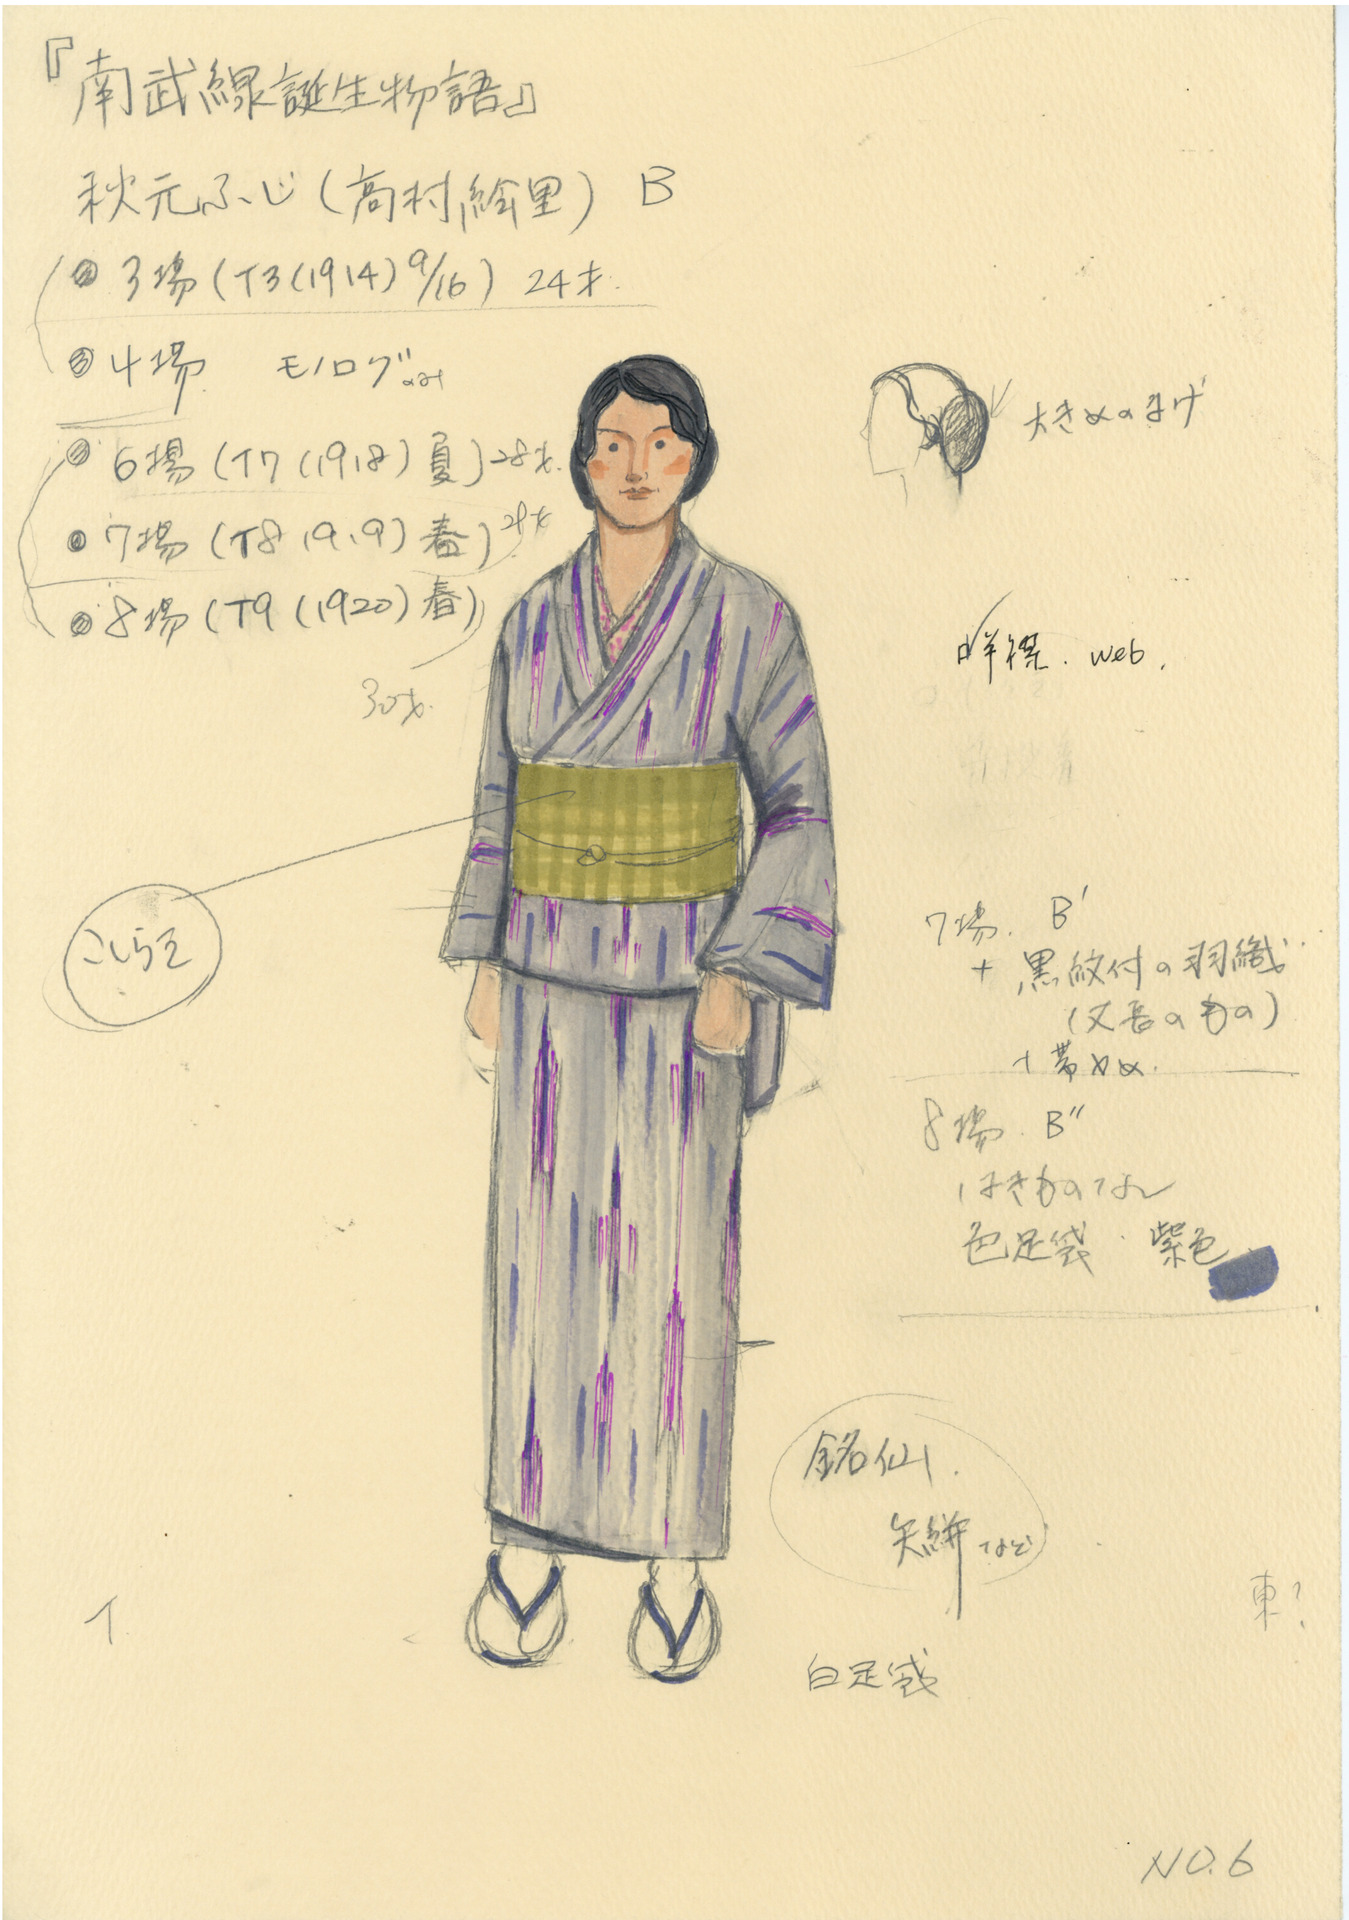 『南武線誕生物語』
秋元ふじ(高村絵里) B
3場(T3(1914)9/16) 24才.
4場 モノログのみ
6場(T7(1918)夏)28才.
7場(T8 1919)春)
8場(T9(1920)春)
30才.
大きめのまげ
半襟. web.
こしらえ
7場. B'
+黒紋付の羽織
(丈長のもの)
+帯じめ.
8場. B''
はきものなし
色足袋・紫色
銘仙.
矢絣など
東?
イ
白足袋
NO.6